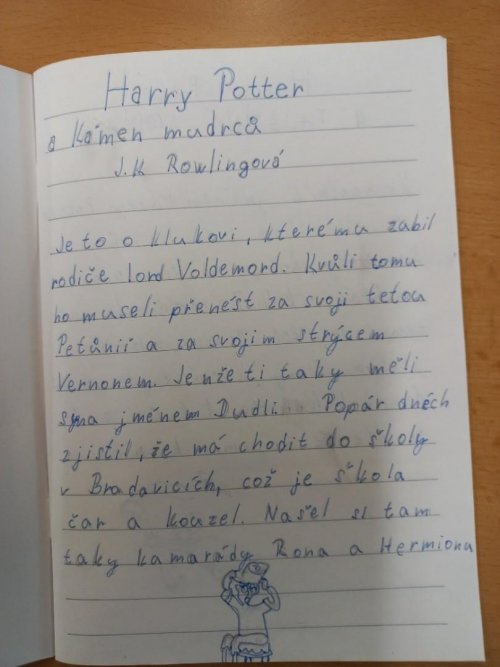 Harry Potter
a Kámen mudrců
J.K Rowlingová
Je to o klukovi, kterému zabil
rodiče lord Voldemord. Kvůli tomu
ho museli přenést za svoji tetou
Petůnií a za svojim strýcem
Vernonem. Jenže ti taky měli
syna jménem Dudli. Popár dnéch
zjistil, že má chodit do školy
v Bradavicích, což je škola
čar a kouzel. Našel si tam
taky kamarády Rona a Hermionu